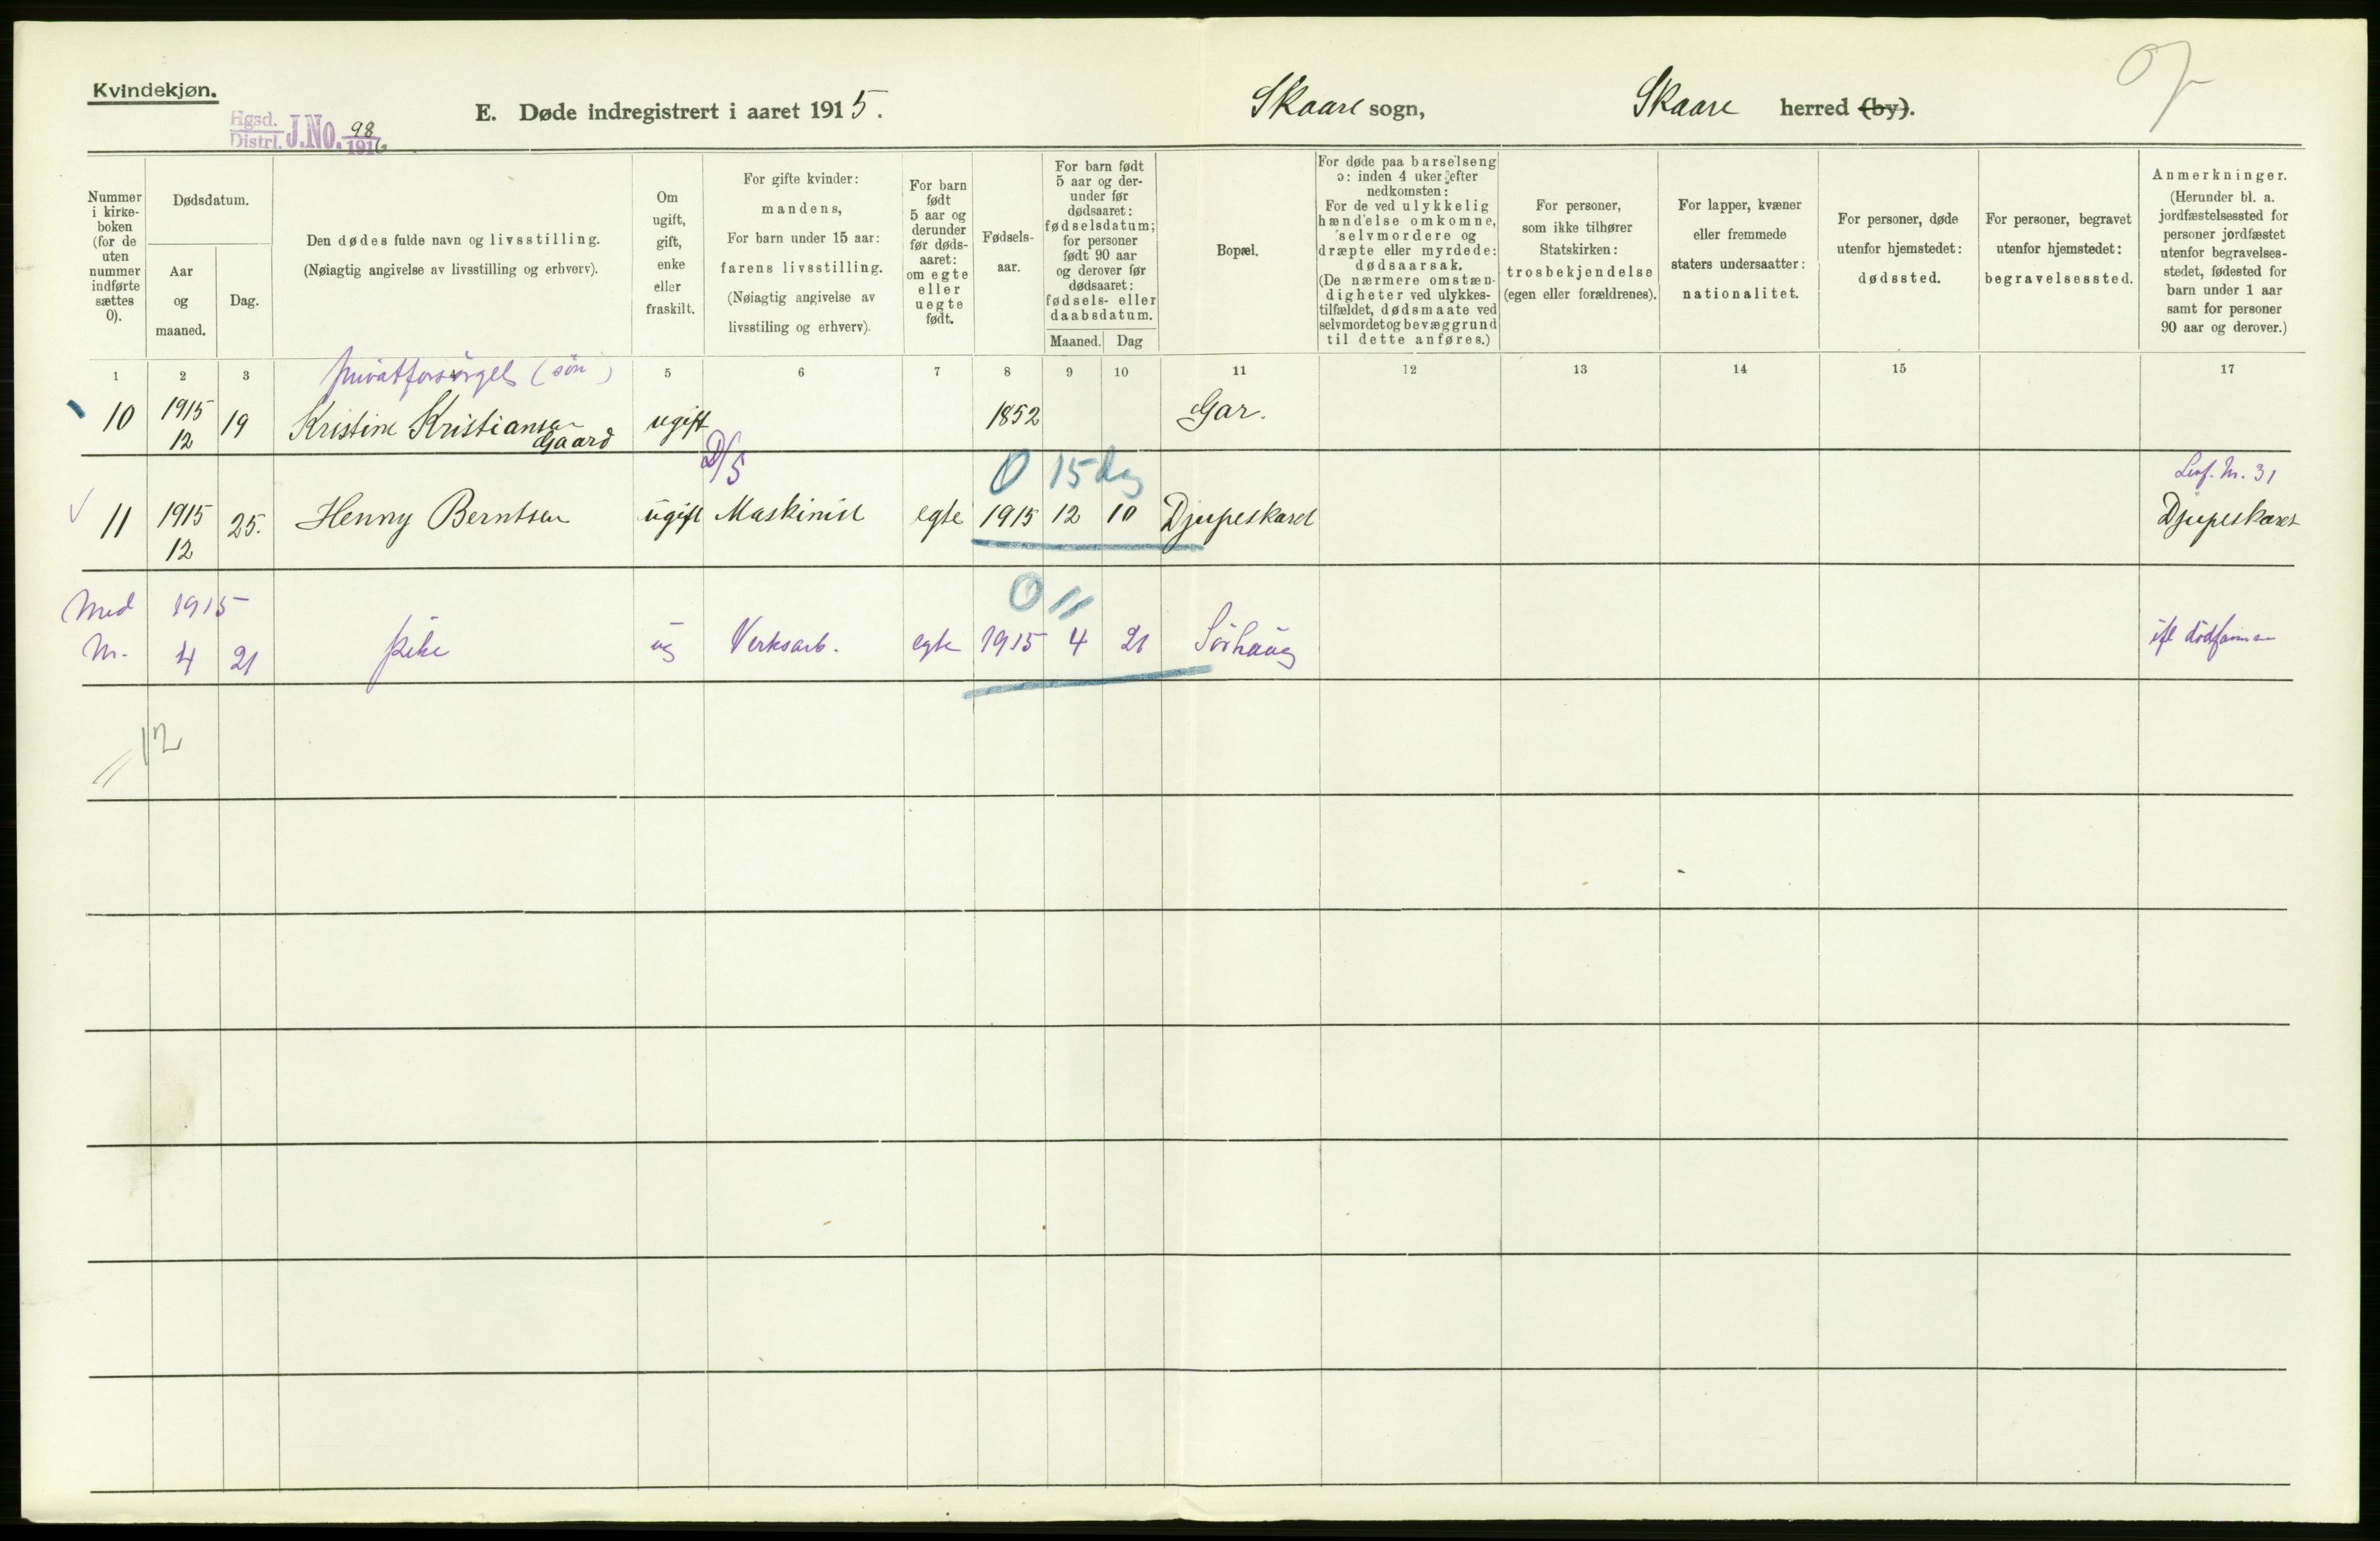 Kvindekjøn.
Hgsd. Distrl. J.No. 98 1916
E. Døde indregistrert i aaret 1915.
Skaare sogn, Skaare herred (by).
Nummer i kirkeboken (for de uten nummer indførte sættes 0).
Dødsdatum.
Aar og maaned.
Dag.
Den dødes fulde navn og livsstilling.
(Nøiagtig angivelse av livsstilling og erhverv).
Om ugift, gift, enke eller fraskilt.
For gifte kvinder:
mandens,
For barn under 15 aar:
farens livsstilling.
(Nøiagtig angivelse av
livsstiling og erhverv).
For barn
født
5 aar og
derunder
før døds-
aaret:
om egte
eller
uegte
født.
Fødsels-
aar.
For barn født
5 aar og der-
under før
dødsaaret:
fødselsdatum;
for personer
født 90 aar
og derover før
dødsaaret:
fødsels- eller
daabsdatum.
Maaned. Dag
Bopæl.
For døde paa barselseng
ɔ: inden 4 uker efter
nedkomsten:
For de ved ulykkelig
hændelse omkomne,
selvmordere og
dræpte eller myrdede:
dødsaarsak.
(De nærmere omstæn-
digheter ved ulykkes-
tilfældet, dødsmaate ved
selvmordet og bevæggrund
til dette anføres.)
For personer,
som ikke tilhører
Statskirken:
trosbekjendelse
(egen eller forældrenes).
For lapper, kvæner
eller fremmede
staters undersaatter:
nationalitet.
For personer, døde
utenfor hjemstedet:
dødssted.
For personer, begravet
utenfor hjemstedet:
begravelsessted.
Anmerkninger.
(Herunder bl. a.
jordfæstelsessted for
personer jordfæstet
utenfor begravelses-
stedet, fødested for
barn under 1 aar
samt for personer
90 aar og derover.)
1 2 3 5 6 7 8 9 10 11 12 13 14 15 17
privatforsörget (sön)
10 1915 12 19 Kristine Kristiansen Gaard ugift 1852 Gar.
D/S 0 15 dag
11 1915 12 25. Henny Berntsen ugift Maskinist egte 1915 12 10 Djupeskaret Djupeskaret
0
Med 1915
Nr. 4 21 pike ug Verksarb. egte 1915 4 21 Sörhaug
12